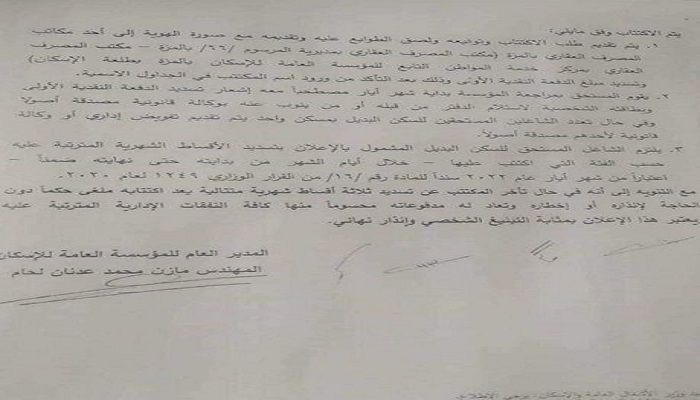 يتم الاكتتاب وفق مايلي:
١. يتم تقديم طلب الاكتتاب وتوابعه ولصق الطوابع عليه وتقديمه مع صورة الهوية إلى أحد مكاتب
المصرف العقاري بالمزة (مكتب المصرف العقاري بمديرية المرسوم /٦٦/ بالمزة – مكتب المصرف
العقاري بمركز خدمة المواطن التابع للمؤسسة العامة للإسكان بالمزة بطلعة الإسكان)
وتسديد مبلغ الدفعة النقدية الأولى وذلك بعد التأكد من ورود اسم المكتتب في الجداول الاسمية.
٢. يقوم المستحق بمراجعة المؤسسة بداية شهر أيار مصطحباً معه إشعار تسديد الدفعة النقدية الأولى
وبطاقته الشخصية لاستلام الدفتر من قبله أو من ينوب عنه بوكالة قانونية مصدقة أصولاً
وفي حال تعدد الشاغلين المستحقين للسكن البديل بمسكن واحد يتم تقديم تفويض إداري أو وكالة
قانونية لأحدهم مصدقة أصولاً.
٣. يلتزم الشاغل المستحق للسكن البديل المشمول بالإعلان بتسديد الأقساط الشهرية المترتبة عليه
حسب الفئة التي اكتتب عليها – خلال أيام الشهر من بدايته حتى نهايته ضمناً –
اعتباراً من شهر أيار عام ٢٠٢٢ سنداً للمادة رقم /١٦/ من القرار الوزاري ١٢٤٩ لعام ٢٠٢٠.
مع التنويه إلى أنه في حال تأخر المكتتب عن تسديد ثلاثة أقساط شهرية متتالية يعد اكتتابه ملغى حكماً دون
الحاجة لإنذاره أو إخطاره وتعاد له مدفوعاته محسوماً منها كافة النفقات الإدارية المترتبة عليه
ويعتبر هذا الإعلان بمثابة التبليغ الشخصي وإنذار نهائي.
المدير العام للمؤسسة العامة للإسكان
المهندس مازن محمد عدنان لحام
وزير الأشغال العامة والإسكان: يرجى الاطلاع